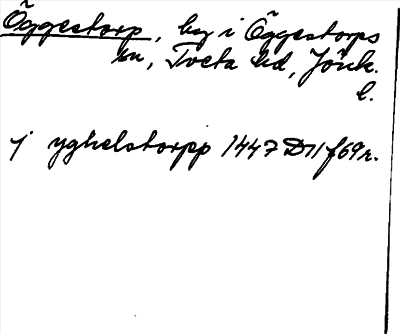 Öggestorp, by i Öggestorps
sn, Tveta hd, Jönk.
l.
j yghelstorpp 1447 D11 f69r.